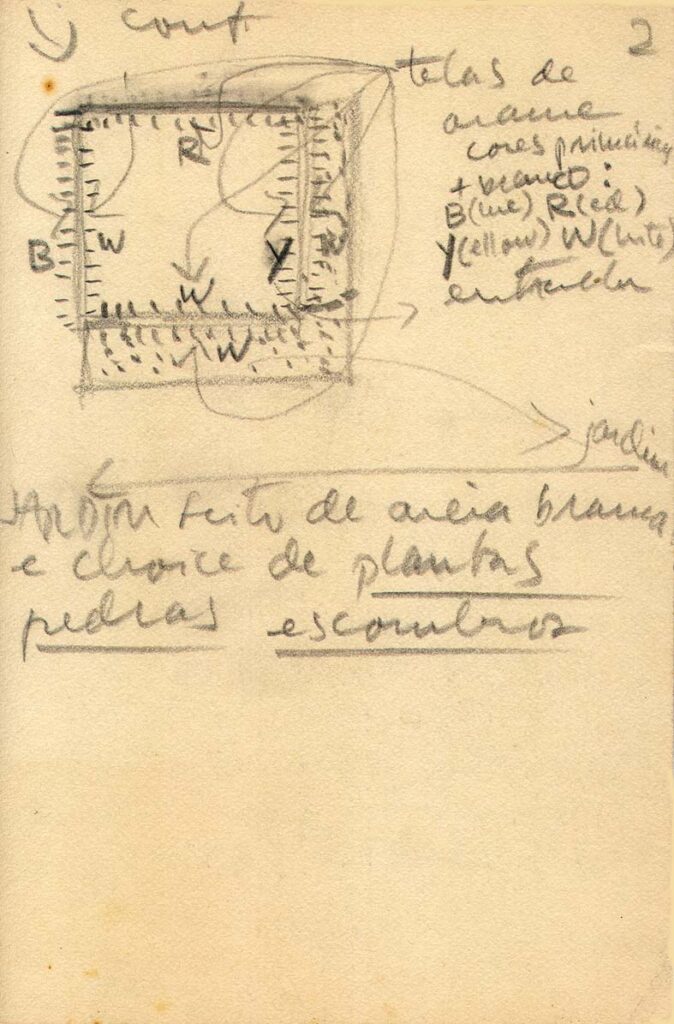 cont
2
telas de
arame
cores primárias
+ branco:
B(lue) R(ed)
Y(ellow) W(hite)
R
B W Y R
W
W
jardim
JARDIM feito de areia branca
e choice de plantas
pedras escombros